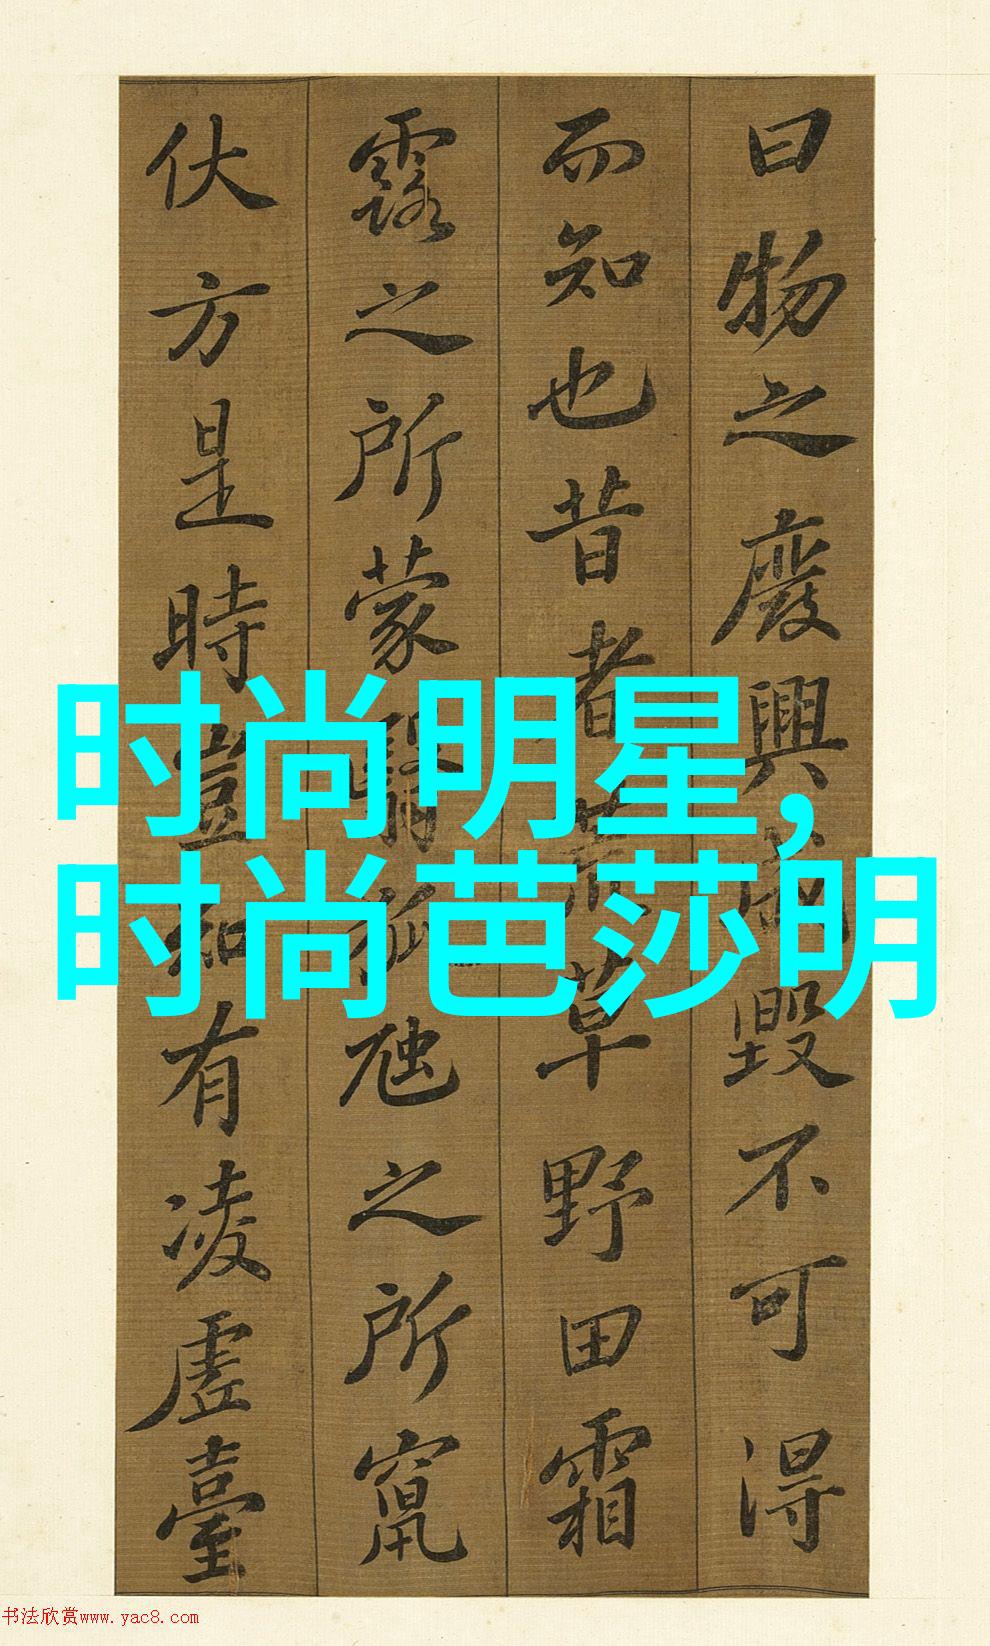 曰物之廢興成毀不可得
而知也昔者荒草野田霜
露之所蒙翳狐虺之所竄
伏方是時豈知有凌虛臺
时尚明星,
时尚芭莎明
书法欣赏www.yac8.com